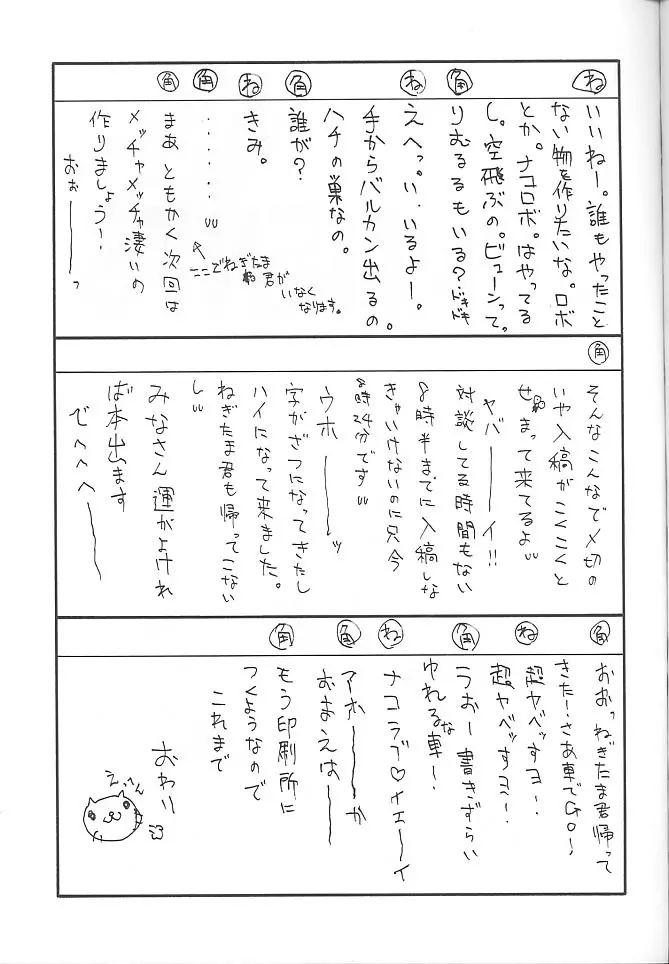 ね
いいねー。誰もやったこと
ない物を作りたいな。ロボ
とか。ナコロボ。はやってる
し。空飛ぶの。ビューンって。
角
りむるるもいる?ドキドキ
ね
えへっ。い、いるよー。
手からバルカン出るの。
ハチの巣なの。
角
誰が?
ね
きみ。
角
・・・・・・
ここでねぎたま
君が
いなく
なります。
角
まあ ともかく次回は
メッチャメッチャ凄いの
作りましょう!
おぉ―――っ
角
そんなこんなで〆切の
いや入稿がこくこくと
せまって来てるよ
ヤバ――イ!!
対談してる時間もない
8時半までに入稿しな
きゃいけないのに只今
8時24分です
ウホ―――ッ
字がざつになってきたし
ハイになって来ました。
ねぎたま君も帰ってこない
し
みなさん 運がよけれ
ば本出ます
でへへへ―――
角
おおっねぎたま君帰って
きた!さあ車でGO!
ね
超ヤベッすヨ!
超ヤベッすヨ!
角
うおー 書きずらい
ゆれるな車!
ね
ナコラブ♡イエーイ
角
アホ―――か
おまえは――
角
もう印刷所に
つくようなので
これまで
おわり
えってん